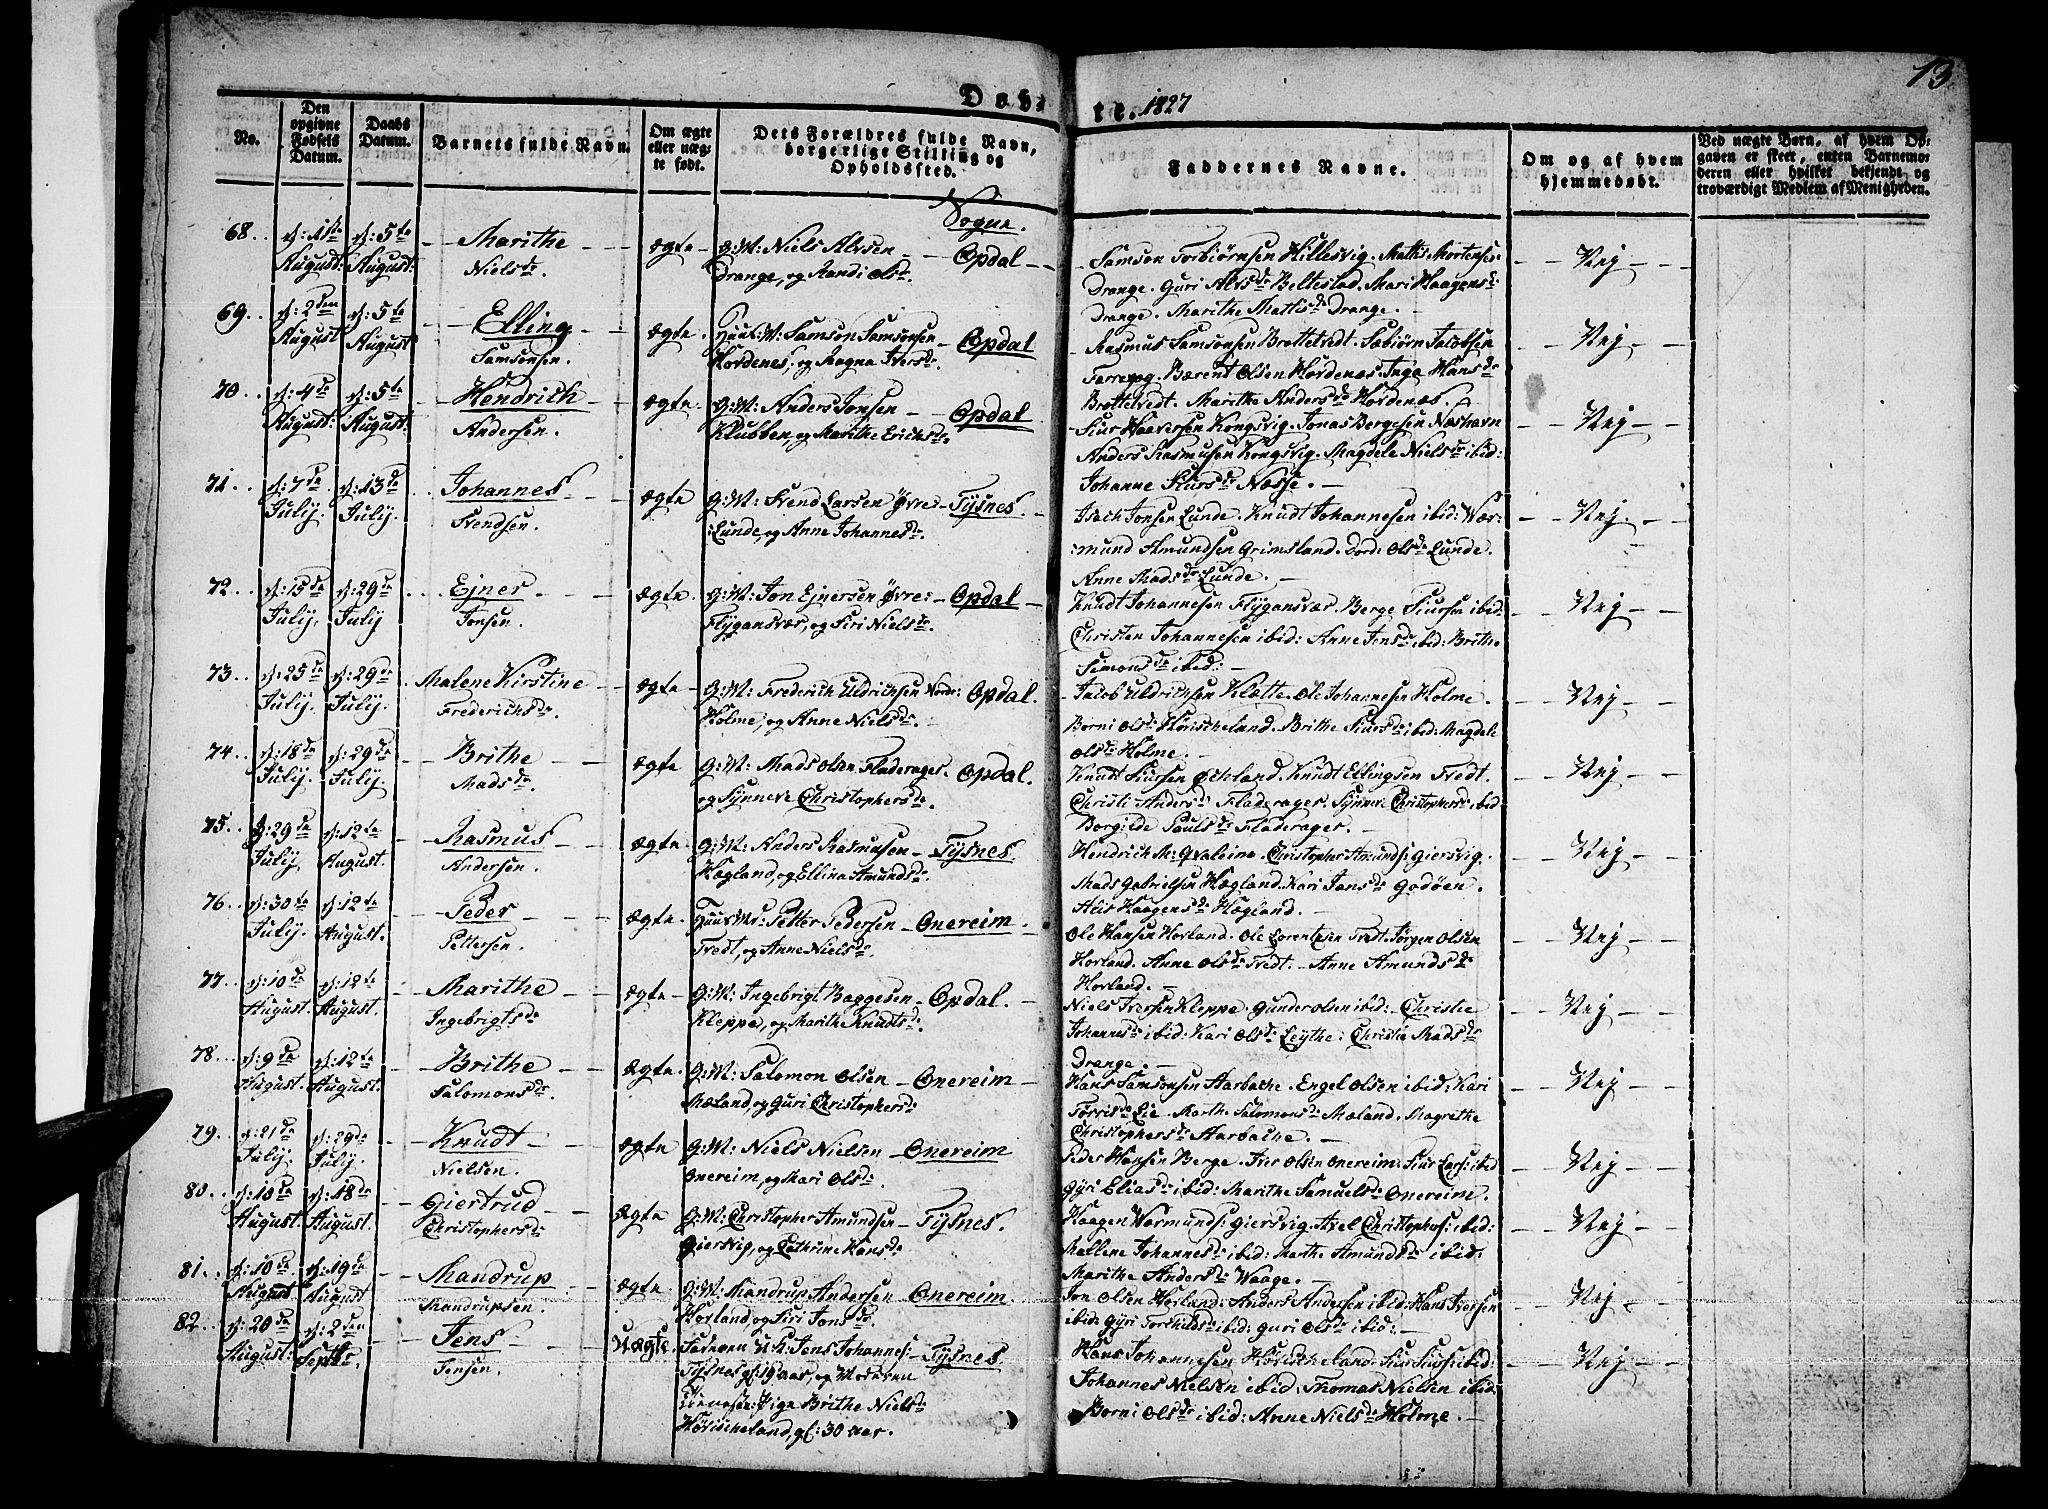 Døb-
te. 1827
13.
No.
Den opgivne Fødsels Datum.
Daabs Datum.
Barnets fulde Navn.
Om ægte eller uægte født.
Dets Forældres fulde Navn, borgerlige Stilling og Opholdssted.
Faddernes Navne.
Om og af hvem hjemmedøbt.
Ved uægte Børn, af hvem Opgaven er skeet, enten Barnemoderen eller hvilket bekjendt og troværdigt Medlem af Menigheden.
Sogne.
68. d: 1ste August: d: 5te August: Marithe Nielsdr ægte G:M: Niels Alvsen Drange, og Randi Olsdr. Opdal
Samson Torbiørnsen Hillesvig. Mathis Mortensen
Drange. Guri Alvsdr Beltestad. Mari Haagensdr
Drange. Marithe Mattisdr Drange.
Nej
69. d: 2den August d: 5te August Elling Samsonsen. ægte Huus:M: Samson Samsonsen Hovdenes, og Ragna Iversdr. Opdal
Rasmus Samsonsen Brottetvedt. Sæbiørn Jacobsen
Færrevog. Bærent Olsen Hovdenæs. Inga Hansdr
Brottetvedt. Marithe Andersdr Hovdenæs.
Nej
70. d: 4de August: d: 5te August: Hendrich Andersen. ægte G:M: Anders Jonsen Klubben, og Marithe Erichsdr. Opdal
Siur Haaversen Kongsvig. Jonas Bergesen Næshavn
Anders Rasmusen Kongsvig. Magdele Nielsdr ibid:
Johanne Siursdr Næsse.
Nej
71. d: 7de Julij. d: 13de Julij. Johannes Svendsen. ægte G:M: Svend Larsen Øvre Lunde, og Anne Johannesdr. Tysnes.
Isach Jonsen Lunde. Knudt Johannesen ibid: Wær-
mund Amundsen Grimsland. Dord: Olsdr Lunde.
Anne Madsdr Lunde.
Nej
72. d: 15de Julij. d: 29de Julij Ejner Jonsen. ægte G:M: Jon Ejnersen Øvre Flygansvær, og Siri Nielsdr. Opdal
Knudt Johannesen Flygansvær. Berge Siursen ibid:
Christen Johannesen ibid: Anne Jensdr ibid: Brithe
Simonsdr ibid:
Nej
73. d: 25de Julij. d: 29de Julij. Malene Kirstine Frederichsdr. ægte G:M: Frederich Uldrichsen Nordr: Holme, og Anne Nielsdr. Opdal.
Jacob Uldrichsen Klætte. Ole Johannesen Holme.
Borni Olsdr Høvischeland. Brithe Siursdr ibid: Magdele
Olsdr Holme.
Nej
74. d: 18de Julij. d: 29de Julij. Brithe Madsdr. ægte G:M: Mads Olsen Fladerager. og Synneve Christophersdr. Opdal.
Knudt Siursen Økland. Knudt Ellingsen Tvedt.
Christi Andersdr Fladerager. Synneve Christophersdr ibid:
Borgilde Paulsdr Fladerager.
Nej
75. d: 29de Julij. d: 12te August. Rasmus Andersen. ægte G:M: Anders Rasmusen Hægland, og Ellina Amundsdr. Tysnes.
Hendrich M: Qvaleim. Christopher Amunds: Giersvig.
Mads Gabrielsen Hægland. Kari Jansdr Godøen.
Alis Haagensdr Hægland.
Nej
76. d: 30te Julij. d: 12te August. Peder Pettersen. ægte. Huus Md: Petter Pedersen Tvedt, og Anne Nielsdr. Onereim.
Ole Hansen Hovland. Ole Lorentzen Tvedt. Jørgen Olsen
Hovland. Anne Olsdr Tvedt. Anne Amundsdr
Hovland.
Nej
77. d: 10de August. d: 12te August. Marithe Ingebrigtsdr ægte G:M: Ingebrigt Baggesen Kleppe, og Marithe Knudtsdr Opdal.
Niels Iversen Kleppe. Gunder Olsen ibid: Christie
Johannesdr ibid: Kari Olsdr Leythe. Christie Madsdr
Drange.
Nej
78. d: 9de August. d: 12te August: Brithe Salomonsdr. ægte G:M: Salomon Olsen Mæland, og Guri Christophersdr Onereim
Hans Samsonsen Aarbache. Engel Olsen ibid: Kari
Torrisdr Lie. Marthe Salomonsdr Mæland. Magrethe
Christophersdr Aarbache.
Nej
79. d: 21de Julij. d: 29de Julij. Knudt Nielsen. ægte G:M: Niels Nielsen Onereim, og Mari Olsdr. Onereim
Peder Hansen Berge. Iver Olsen Onereim. Siur Lars: ibid
Gyri Eliasdr ibid: Marithe Samuelsdr Onereim.
Nej
80. d: 10de August. d: 18de August. Giertrud Christophersdr ægte G:M: Christopher Amundsen Giersvig, og Cathrine Hansdr Tysnes.
Haagen Wormunds: Giersvig. Axel Christophers: ibid:
Mallene Johannesdr ibid: Marthe Amundsdr ibid:
Marithe Andersdr Waage.
Nej
81. d: 10de August d: 19de August Mandrup Mandrupsen. ægte G:M: Mandrup Andersen Hovland, og Siri Jonsdr. Onereim.
Jon Olsen Hovland. Anders Andersen ibid: Hans Iversen
ibid: Gyri Torchildsdr ibid: Guri Olsdr ibid:
Nej
82. d: 20de August: d: 2den Septbr. Jens Jensen. Uægte Faderen U:K: Jens Johannes: Tysnes gl: 19 aar, og Moderen Pige Brithe Nielsdr Høvischeland, gl: 30 aar. Tysnes
Hans Johannesen Høvischeland. Siur Siurs: ibid:
Johannes Nielsen ibid: Thomas Nielsen ibid:
Borni Olsdr ibid: Anne Nielsdr Holme.
Nej